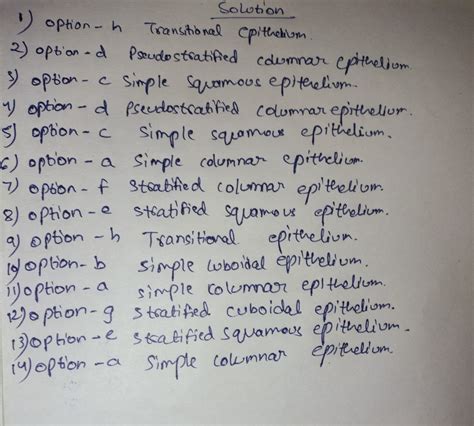 Solution
1) option - h Transitional epithelium.
2) option - d Pseudostratified columnar epithelium.
3) option - c Simple squamous epithelium.
4) option - d Pseudostratified columnar epithelium.
5) option - c Simple squamous epithelium.
6) option - a Simple columnar epithelium.
7) option - f Stratified columnar epithelium.
8) option - e Stratified squamous epithelium.
9) option - h Transitional epithelium.
10) option - b Simple cuboidal epithelium.
11) option - a simple columnar epithelium.
12) option - g Stratified cuboidal epithelium.
13) option - e Stratified squamous epithelium.
14) option - a Simple columnar epithelium.